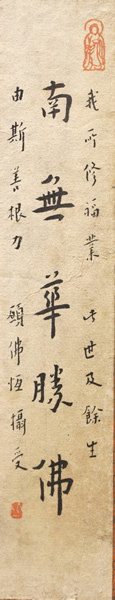 我所修福業 此世及餘生
南無華勝佛
由斯善根力 願佛恆攝受